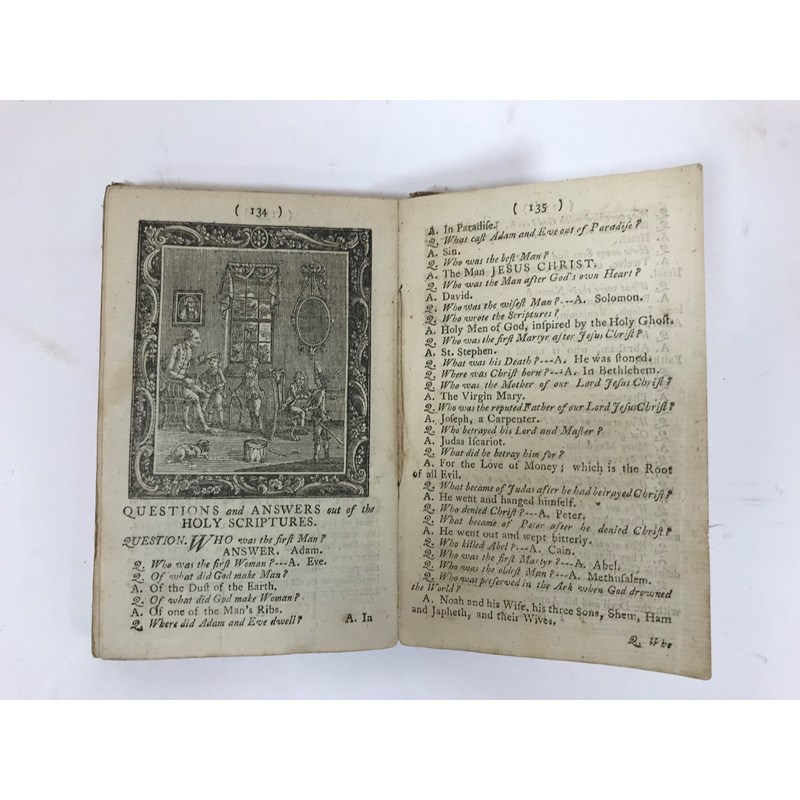 ( 134 )
QUESTIONS and ANSWERS out of the
HOLY SCRIPTURES.
QUESTION. WHO was the firſt Man?
ANSWER. Adam.
Q. Who was the firſt Woman?---A. Eve.
Q. Of what did God make Man?
A. Of the Duſt of the Earth.
Q. Of what did God make Woman?
A. Of one of the Man's Ribs.
Q. Where did Adam and Eve dwell?
A. In
( 135 )
A. In Paradiſe.
Q. What caſt Adam and Eve out of Paradiſe?
A. Sin.
Q. Who was the beſt Man?
A. The Man JESUS CHRIST.
Q. Who was the Man after God's own Heart?
A. David.
Q. Who was the wiſeſt Man?---A. Solomon.
Q. Who wrote the Scriptures?
A. Holy Men of God, inſpired by the Holy Ghoſt.
Q. Who was the firſt Martyr after Jeſus Chriſt?
A. St. Stephen.
Q. What was his Death?---A. He was ſtoned.
Q. Where was Chriſt born?---A. In Bethlehem.
Q. Who was the Mother of our Lord Jeſus Chriſt?
A. The Virgin Mary.
Q. Who was the reputed Father of our Lord Jeſus Chriſt?
A. Joſeph, a Carpenter.
Q. Who betrayed his Lord and Maſter?
A. Judas Iſcariot.
Q. What did he betray him for?
A. For the Love of Money; which is the Root
of all Evil.
Q. What became of Judas after he had betrayed Chriſt?
A. He went and hanged himſelf.
Q. Who denied Chriſt?---A. Peter.
Q. What became of Peter after he denied Chriſt?
A. He went out and wept bitterly.
Q. Who killed Abel?---A. Cain.
Q. Who was the firſt Martyr?---A. Abel.
Q. Who was the oldeſt Man?---A. Methuſalem.
Q. Who was preſerved in the Ark when God drowned
the World?
A. Noah and his Wife, his three Sons, Shem, Ham
and Japheth, and their Wives.
Q. Who